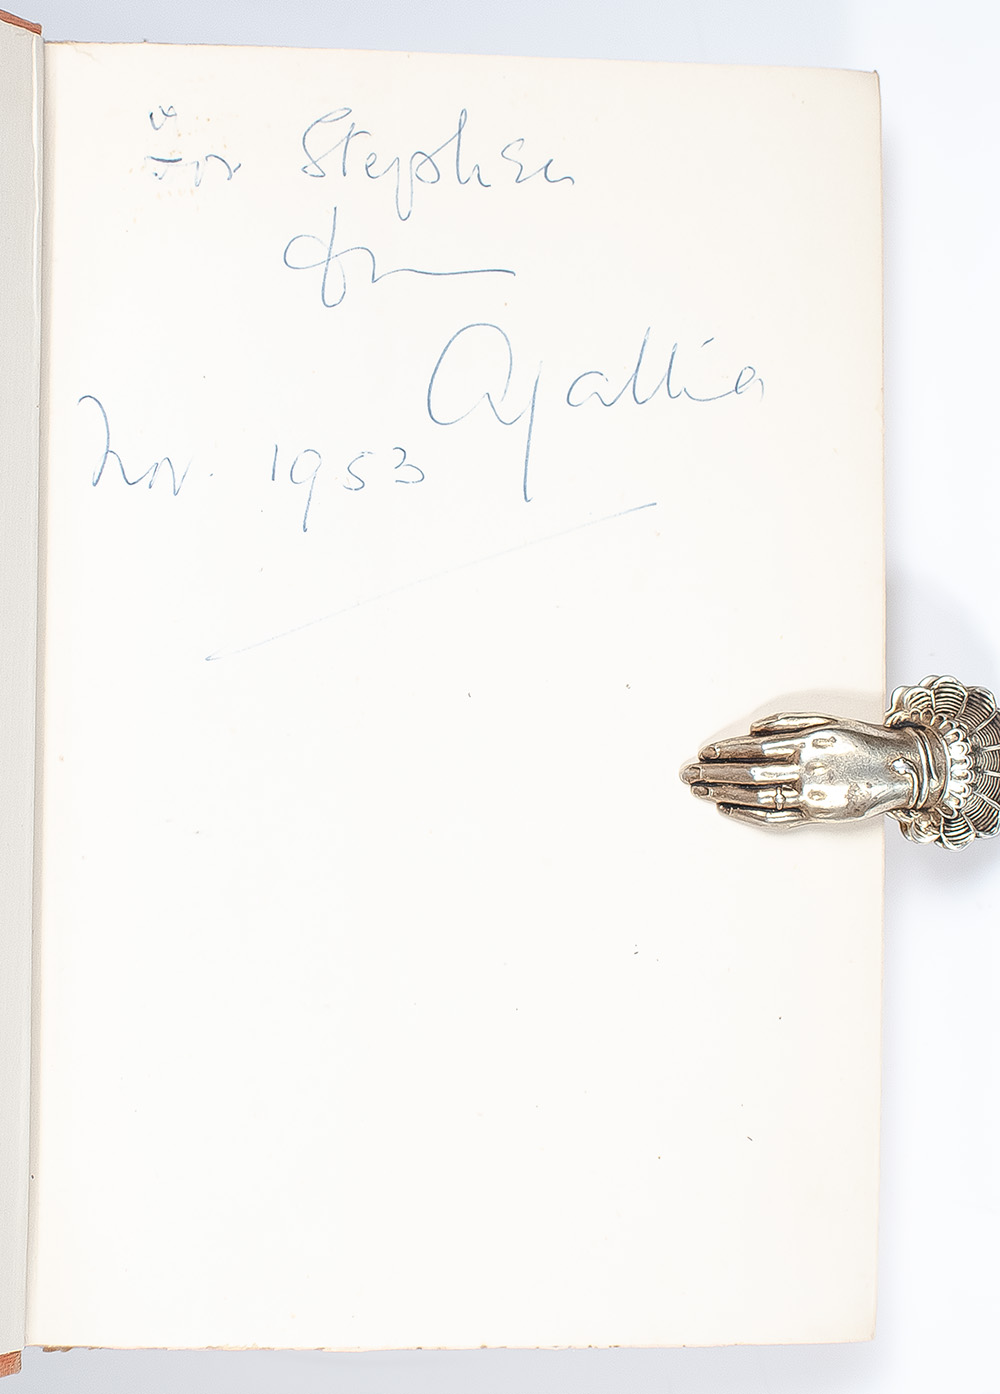 For Stephen
from
Agatha
Nov. 1953